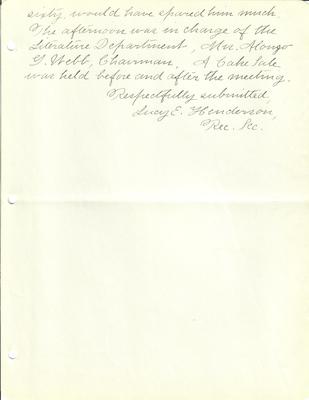 sixty, would have spared him much.
The afternoon was in charge of the
Literature Department, Mrs. Alonzo
G. Webb, Chairman. A Cake Sale
was held before and after the meeting.
Respectfully submitted,
Lucy E. Henderson,
Rec. Sec.